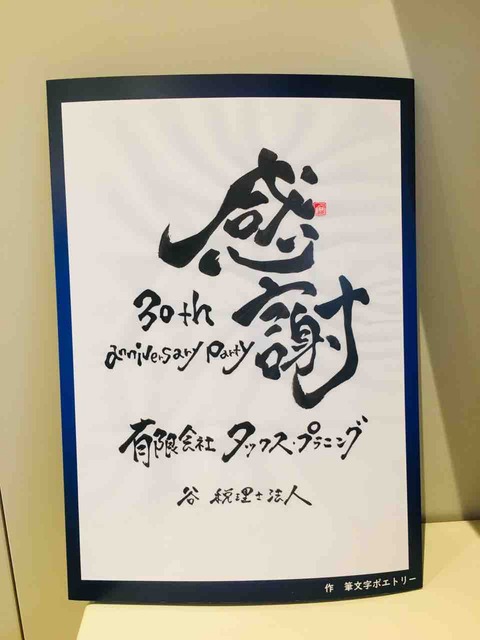 感謝
30th
anniversary party
有限会社 タックス・プラニング
谷 税理士法人
作 筆文字ポエトリー